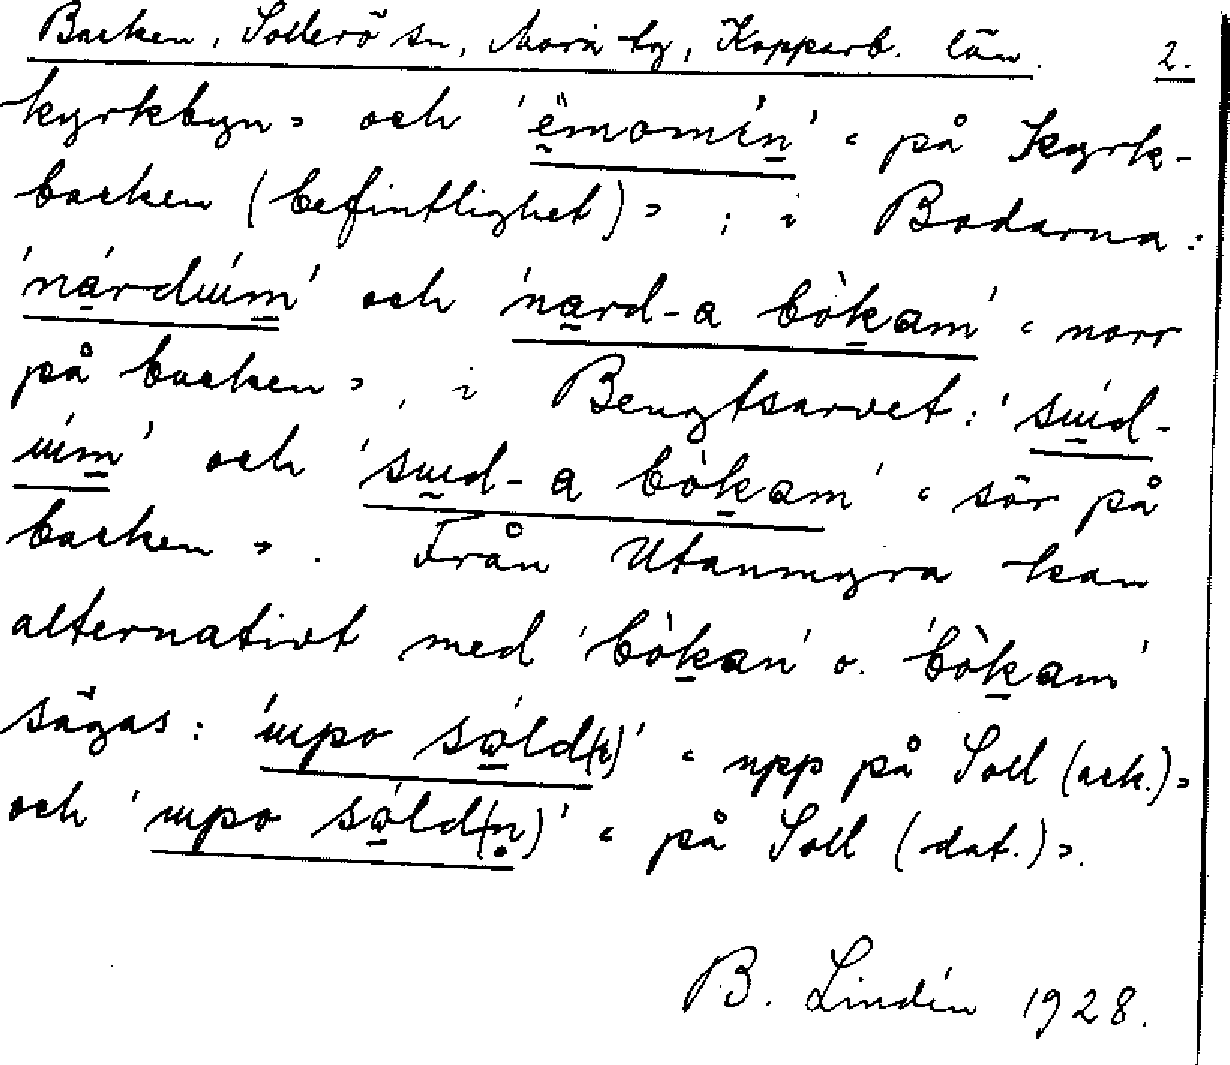 Backen, Sollerö sn, Mora tg, Kopparb. län. 2.
kyrkbyn» och 'ëmomin' « på Kyrk-
backen (befintlighet)» ; i Bodarna:
'nárdɯ́m' och 'nard-a bòkam' « norr
på backen», i Bengtsarvet: 'sɯ́d-
ɯ́m' och 'sɯd-a bòkam' « sör på
backen». Från Utanmyra kan
alternativt med 'bòkan' o. 'bòkam'
sägas: 'ɯpo sǫ́ld(i)' « upp på Soll (ack.)»
och 'ɯpo sǫ́ld(n)' « på Soll (dat.)».
B. Lindén 1928.